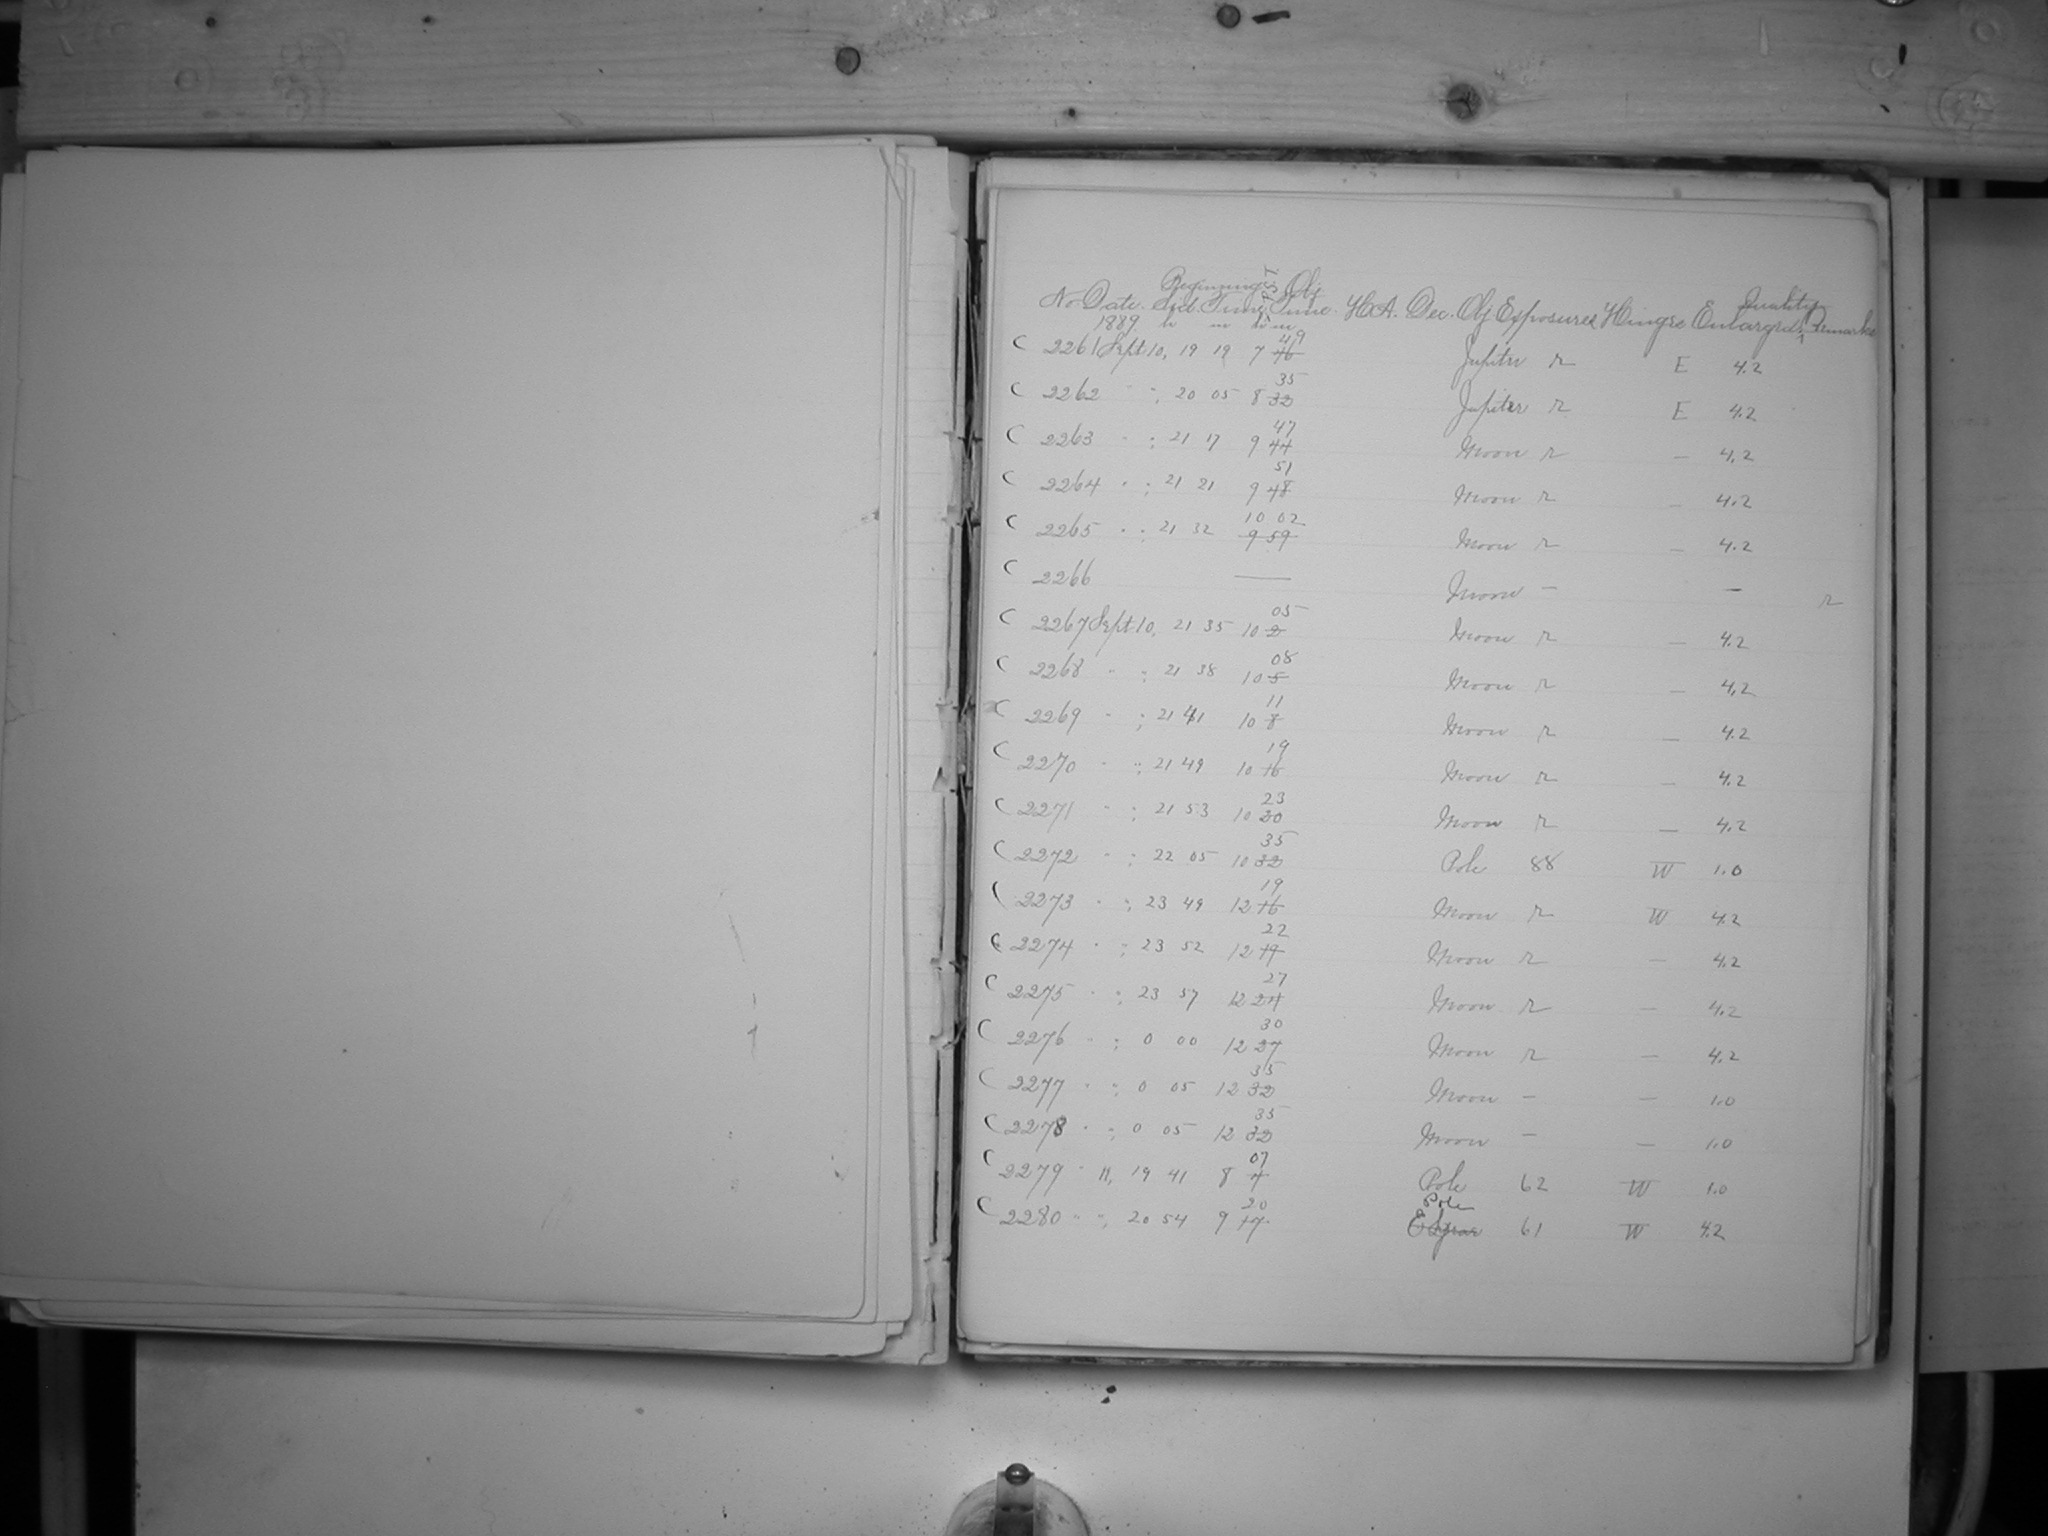 Beginning Obj
No Date. Sid. Time Time. H.A. Dec. Obj Exposures Hinge Enlarged Quality Remarks
1889. h m h m
49
C 2261 Sept 10, 19 19 7 46 Jupiter r E 4.2
35
C 2262 " "; 20 05 8 32 Jupiter r E 4.2
47
C 2263 " "; 21 17 9 44 Moon r — 4.2
51
C 2264 " "; 21 21 9 48 Moon r — 4.2
10 02
C 2265 " "; 21 32 9 59 Moon r — 4.2
C 2266 — Moon — — r
05
C 2267 Sept 10, 21 35 10 2 Moon r — 4.2
08
C 2268 " "; 21 38 10 5 Moon r — 4.2
11
C 2269 " "; 21 41 10 8 Moon r — 4.2
19
C 2270 " "; 21 49 10 16 Moon r — 4.2
23
C 2271 " "; 21 53 10 20 Moon r — 4.2
35
C 2272 " "; 22 05 10 32 Pole 88 W 1.0
19
C 2273 " "; 23 49 12 16 Moon r W 4.2
22
C 2274 " "; 23 52 12 19 Moon r — 4.2
27
C 2275 " "; 23 57 12 24 Moon r — 4.2
30
C 2276 " "; 0 00 12 27 Moon r — 4.2
35
C 2277 " "; 0 05 12 32 Moon — — 1.0
35
C 2278 " "; 0 05 12 32 Moon — — 1.0
07
C 2279 " 11, 19 41 8 4 Pole 62 W 1.0
20 Pole
C 2280 " "; 20 54 9 17 61 W 4.2